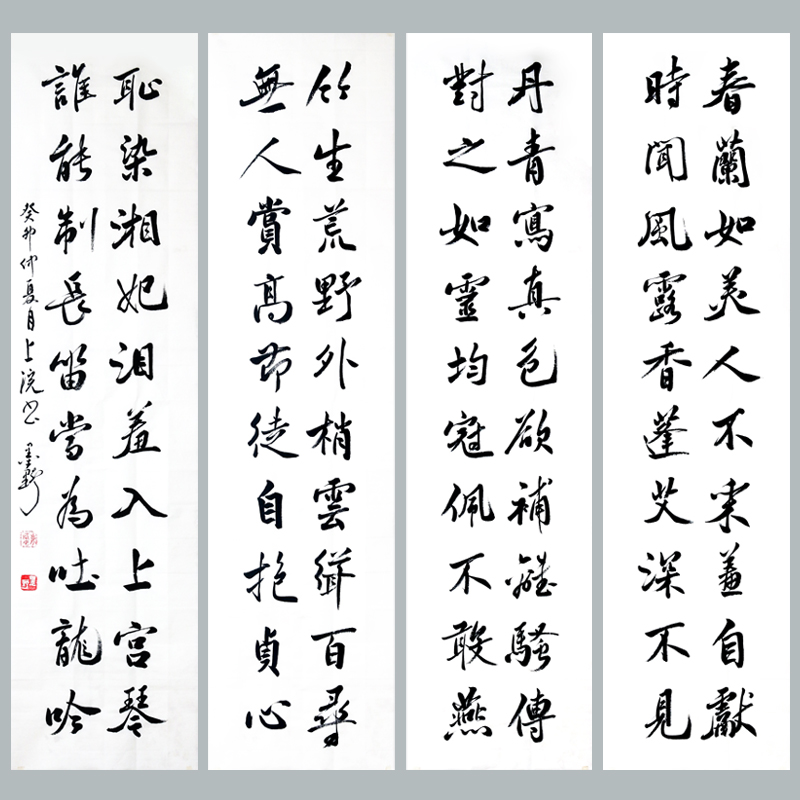 春蘭如美人不采羞自獻
時聞風露香蓬艾深不見
丹青寫真色欲補離騷傳
對之如靈均冠佩不敢燕
竹生荒野外梢雲聳百尋
無人賞高節徒自抱貞心
恥染湘妃泪羞入上宮琴
誰能制長笛當為吐龍吟
癸卯仲夏月上浣书